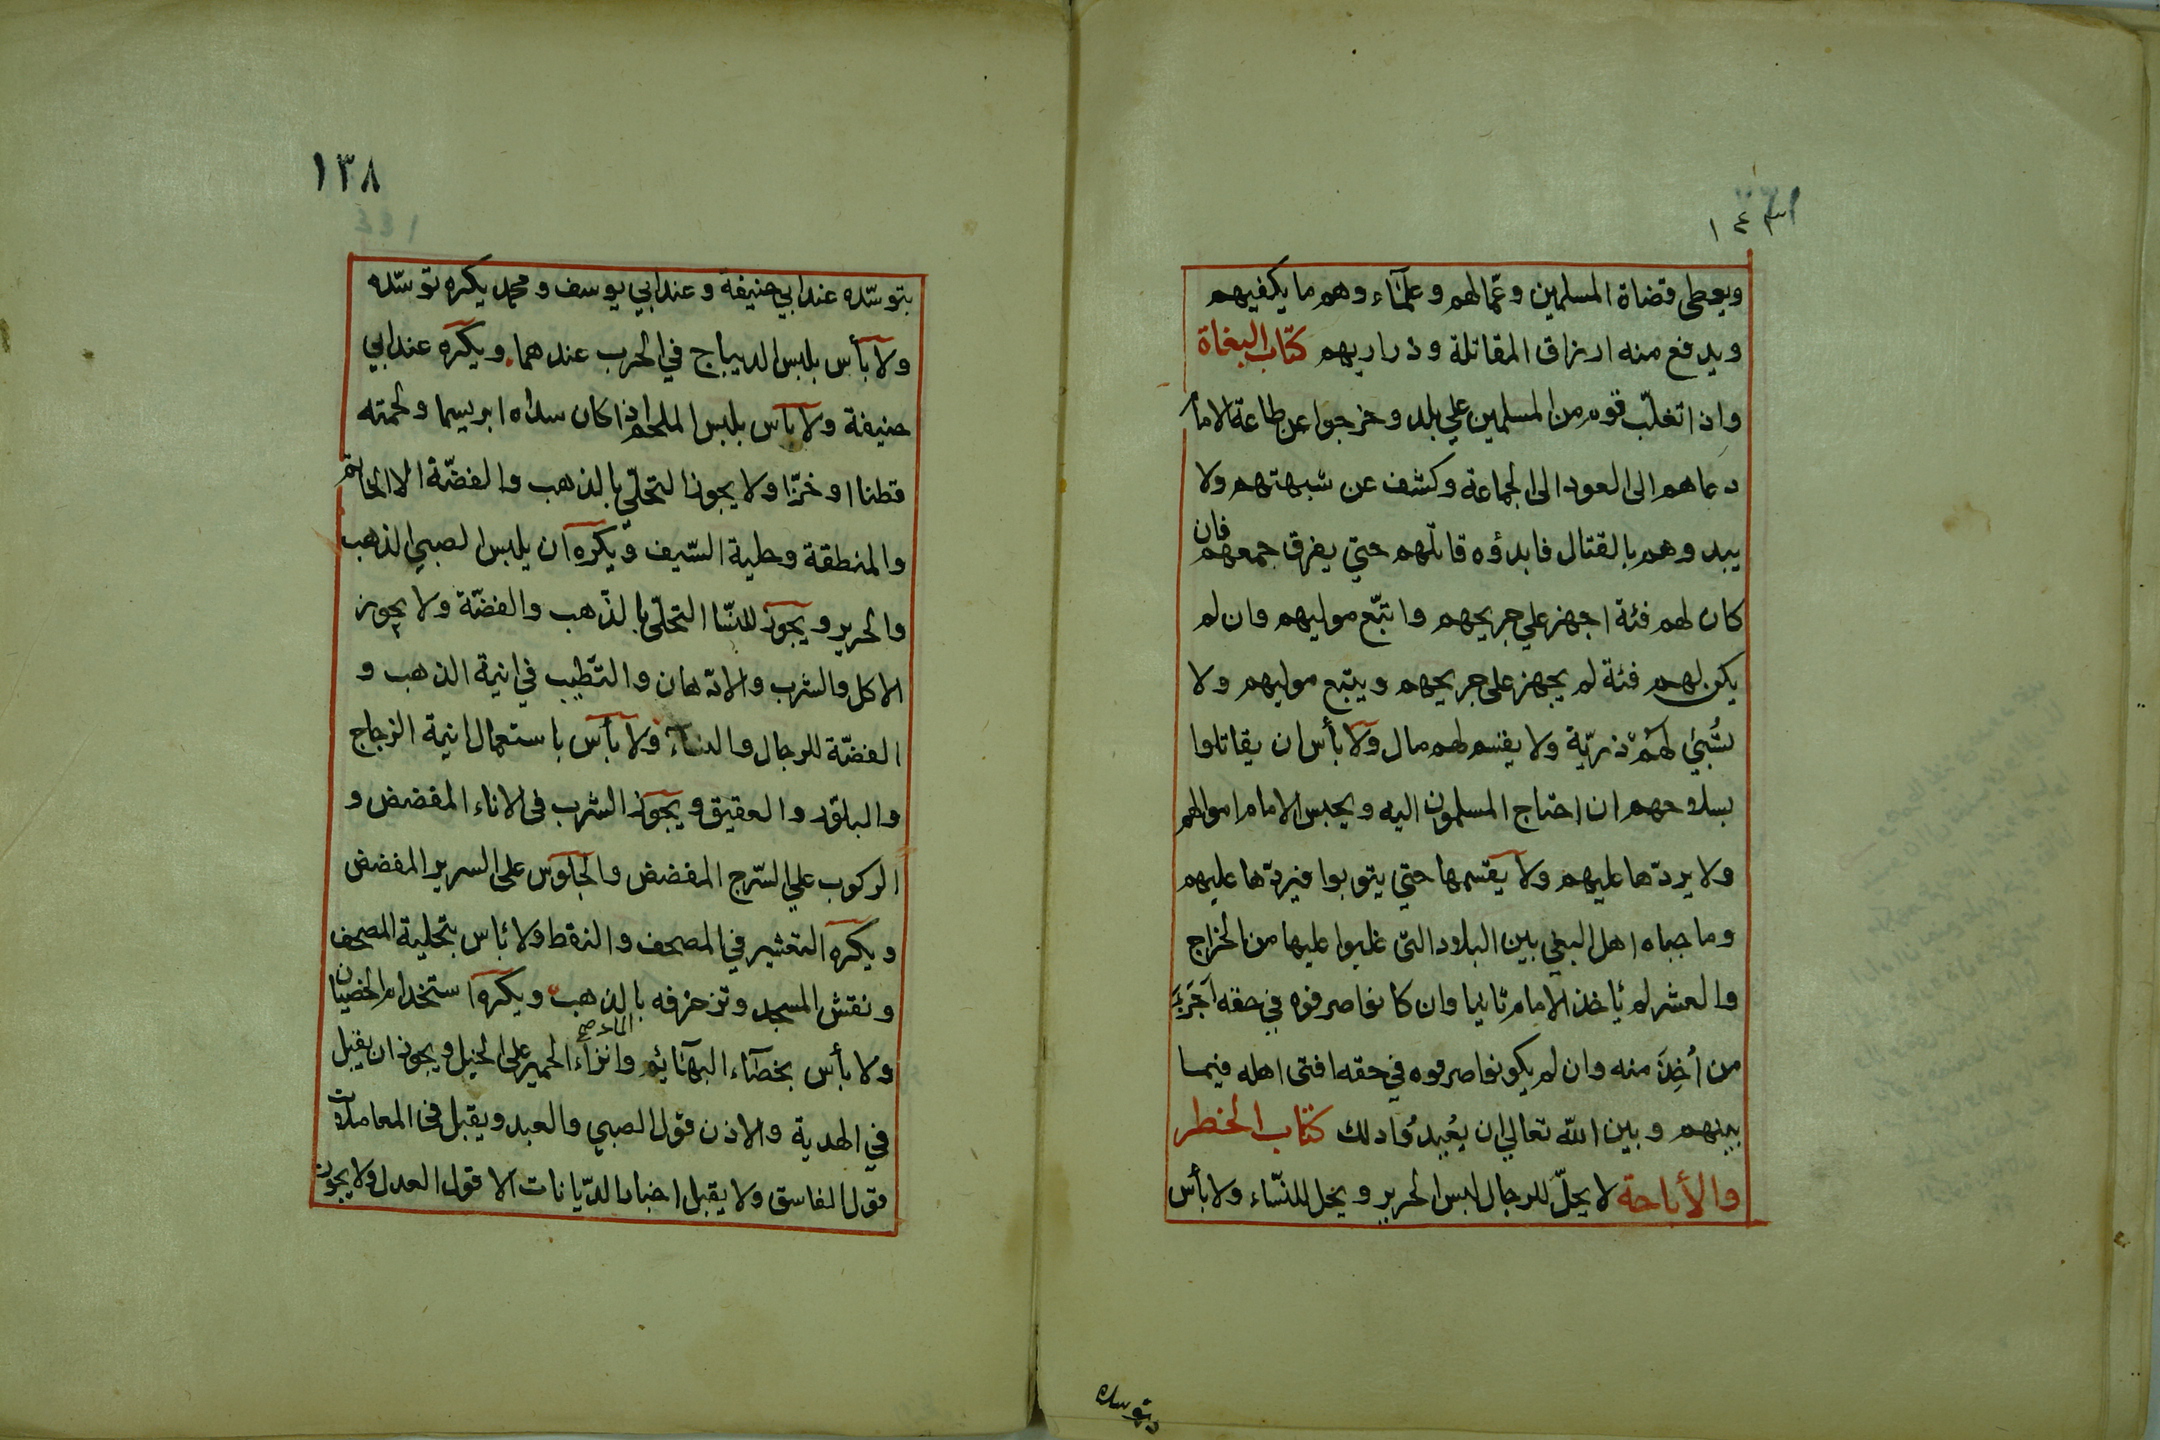 ١٤٣
ويعطى قضاة المسلمين وعمّالهم وعلمآء وهم ما يكفيهم
ويدفع منه ارزاق المقاتلة وذراريهم كتاب البغاة
واذا تغلّب قوم من المسلمين علي بلد وخرجوا عن طاعة الامام
دعاهم الى العود الى الجماعة وكشف عن شبهتهم ولا
يبدوهم بالقتال فابدؤه قاتلهم حتي يفرق جمعهم فان
كان لهم فئة اجهز علي جريحهم واتبّع موليهم وان لم
يكن لهم فئة لم يجهز على جريحهم ويتبع موليهم ولا
تُسْبَي لهُمْ ذريّة ولا يقسم لهم مال ولا بأس ان يقاتلوا
بسلاحهم ان احتاج المسلمون اليه ويحبس الامام اموالهم
ولا يردّها عليهم ولا يقسمها حتي يتوبوا فيردّها عليهم
وما جباه اهل البغي بين البلاد التى غلبوا عليها من الخراج
والعشر لم يأخذ الامام ثانيا وان كانوا صرفوه في حقه اجزى
من أُخِذَ منه وان لم يكونوا صرفوه في حقه افتى اهله فيما
بينهم وبين اللّه تعالي ان يعُيدُوا ذلك كتاب الحظر
والأباحة لا يحلّ للرجال لبس الحرير ويحل للنّساء ولا بأس
بتوسده
١٣٨
١٤٤
بتوسّده عند ابي حنيفة وعند ابي يوسف ومحمد يكره توسّده
ولا بأس بلبس الديباج في الحرب عندهما ويكره عند ابي
حنيفة ولا بأس بلبس الملحم اذا كان سداه ابريسما ولحمته
قطنا او خزّا ولا يجوز التحلّي بالذهب والفضّة الا الخاتم
والمنطقة وحلية السّيف ويكره ان يلبس الصبي الذهب
والحرير ويجوز للنسا التحلّي بالذّهب والفضّة ولا يجوز
الاكل والشرب والادّهان والتّطيب في انية الذهب و
الفضّة للرجال والنسآء ولا بأس باستعمال انية الزجاج
والبلوّر والعقيق ويجوز الشرب فى الاناء المفضض و
الركوب علي السّرج المفضض والجلوس على السرير المفضض
ويكره التعشير في المصحف والنقط ولا بأس بتحلية المصحف
ونقش المسجد وتزخرفه بالذهب ويكره استخدام الخصيان
ولا بأس بخصآء البهآئم وانزآء الحمير على الخيل ويجوز ان يقبل
في الهدية والاذن قول الصبي والعبد ويقبل فى المعاملات
قول الفاسق ولا يقبل اخبار الدّيانات الا قول العدل ولا يجوز